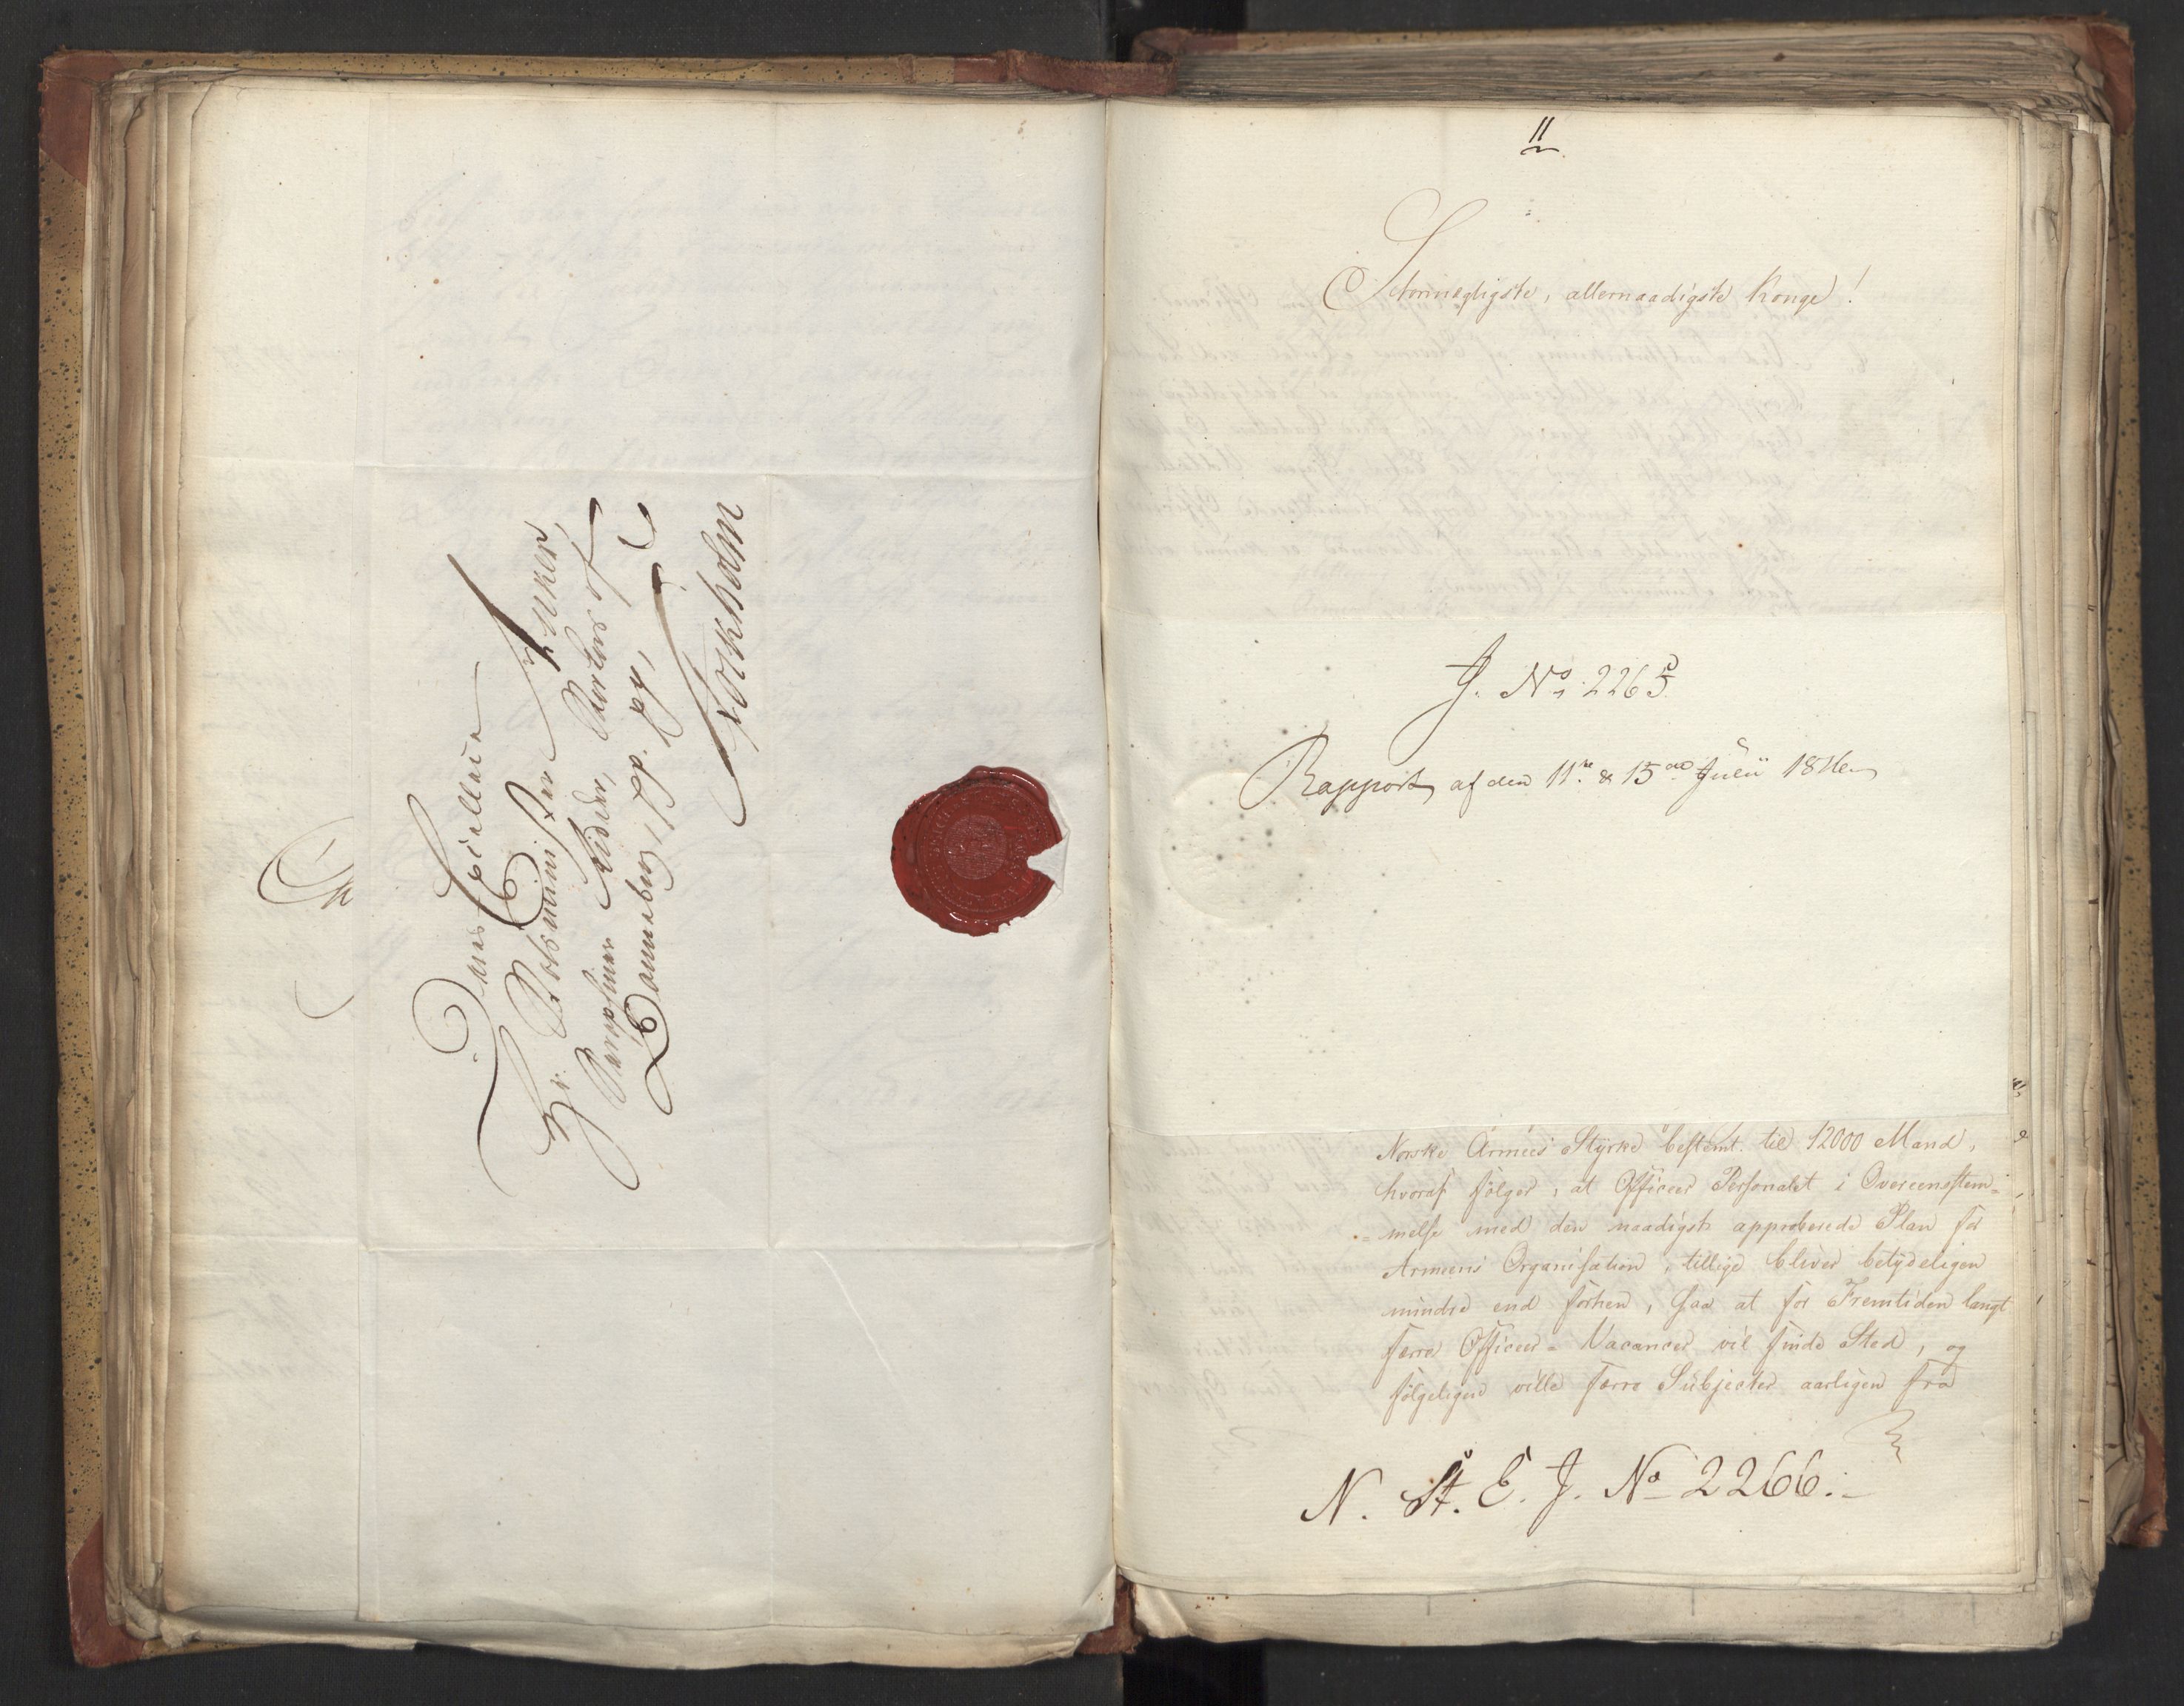 Hans Excellence
Hr. Statsminister Anker,
Dannebrog, pp. pp. pp,
Stokholm
11
Stormægtigste, allernaadigste Konge!
J. No 2265.
Rapport af den 11te & 15de Julii 1816
Norske Armees Styrke bestemt til 12000 Mand,
hvoraf følger, at Officeer Personalet i Overeensstem=
=melse med den naadigst approberede Plan for
Armeens Organisation, tillige bliver betydeligen
mindre end forhen, saa at for Fremtiden langt
færre Officeer=Vacancer vil finde Sted, og
følgeligen ville færre Subjecter aarligen fra
N. St. E. J. No 2266.